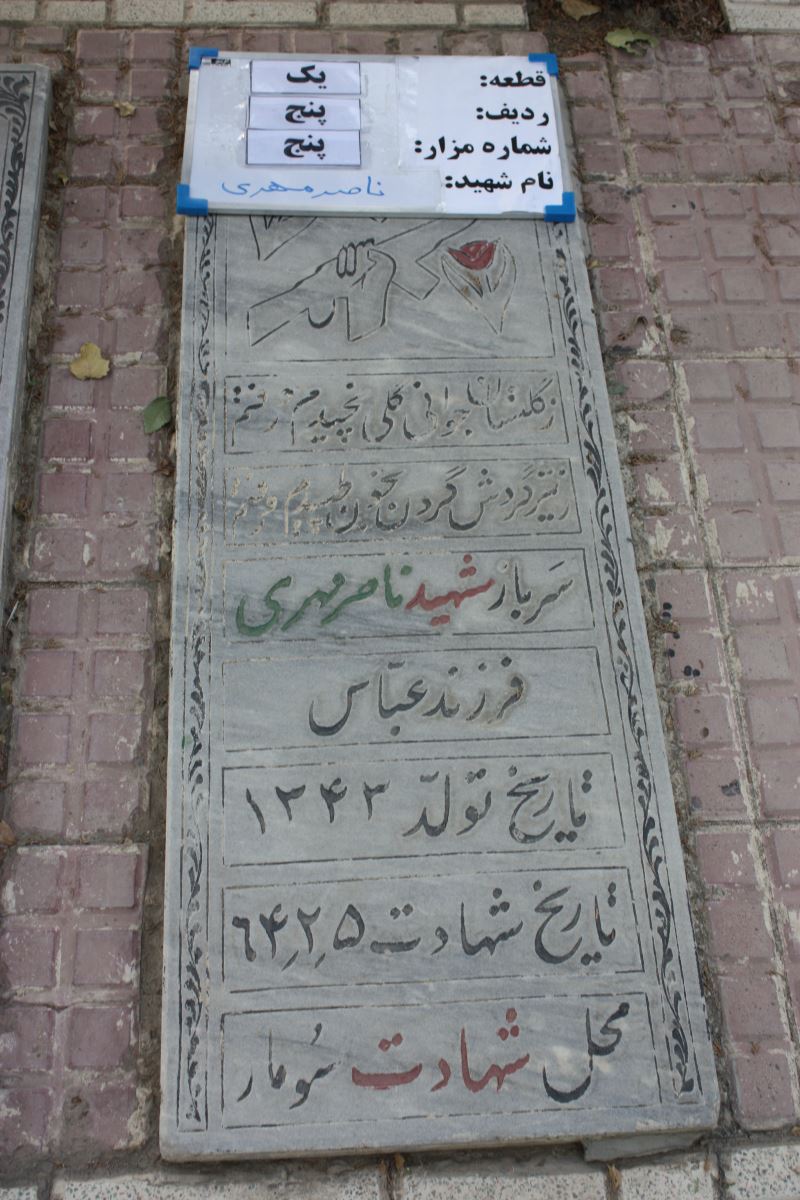 قطعه: یک
ردیف: پنج
شماره مزار: پنج
نام شهید: ناصر مهری
زگلستان جوانی گلی نچیدم رفتم
زتیر گردش گردن بخون طپیدم و رفتم
سرباز شهید ناصر مهری
فرزند عباس
تاریخ تولد ۱۳۴۳
تاریخ شهادت ۶۴٫۲٫۵
محل شهادت سومار